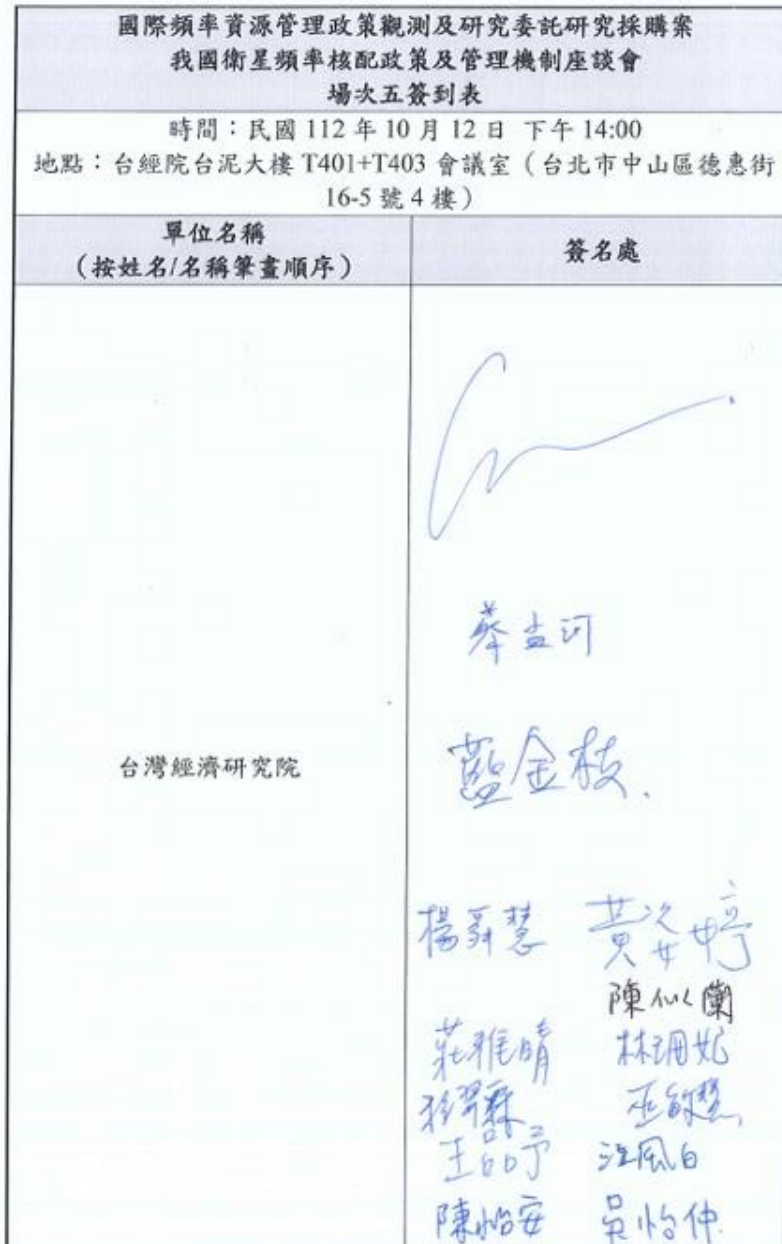 國際頻率資源管理政策觀測及研究委託研究採購案
我國衛星頻率核配政策及管理機制座談會
場次五簽到表
時間：民國 112 年 10 月 12 日 下午 14:00
地點：台經院台泥大樓 T401+T403 會議室（台北市中山區德惠街
16-5 號 4 樓）
單位名稱
（按姓名/名稱筆畫順序）
簽名處
台灣經濟研究院
藍金枝
楊舜慧 黃姿婷
陳似蘭
莊雅晴 林珊妃
巫敏慧
王品予 江風白
陳怡安 吳怡仲